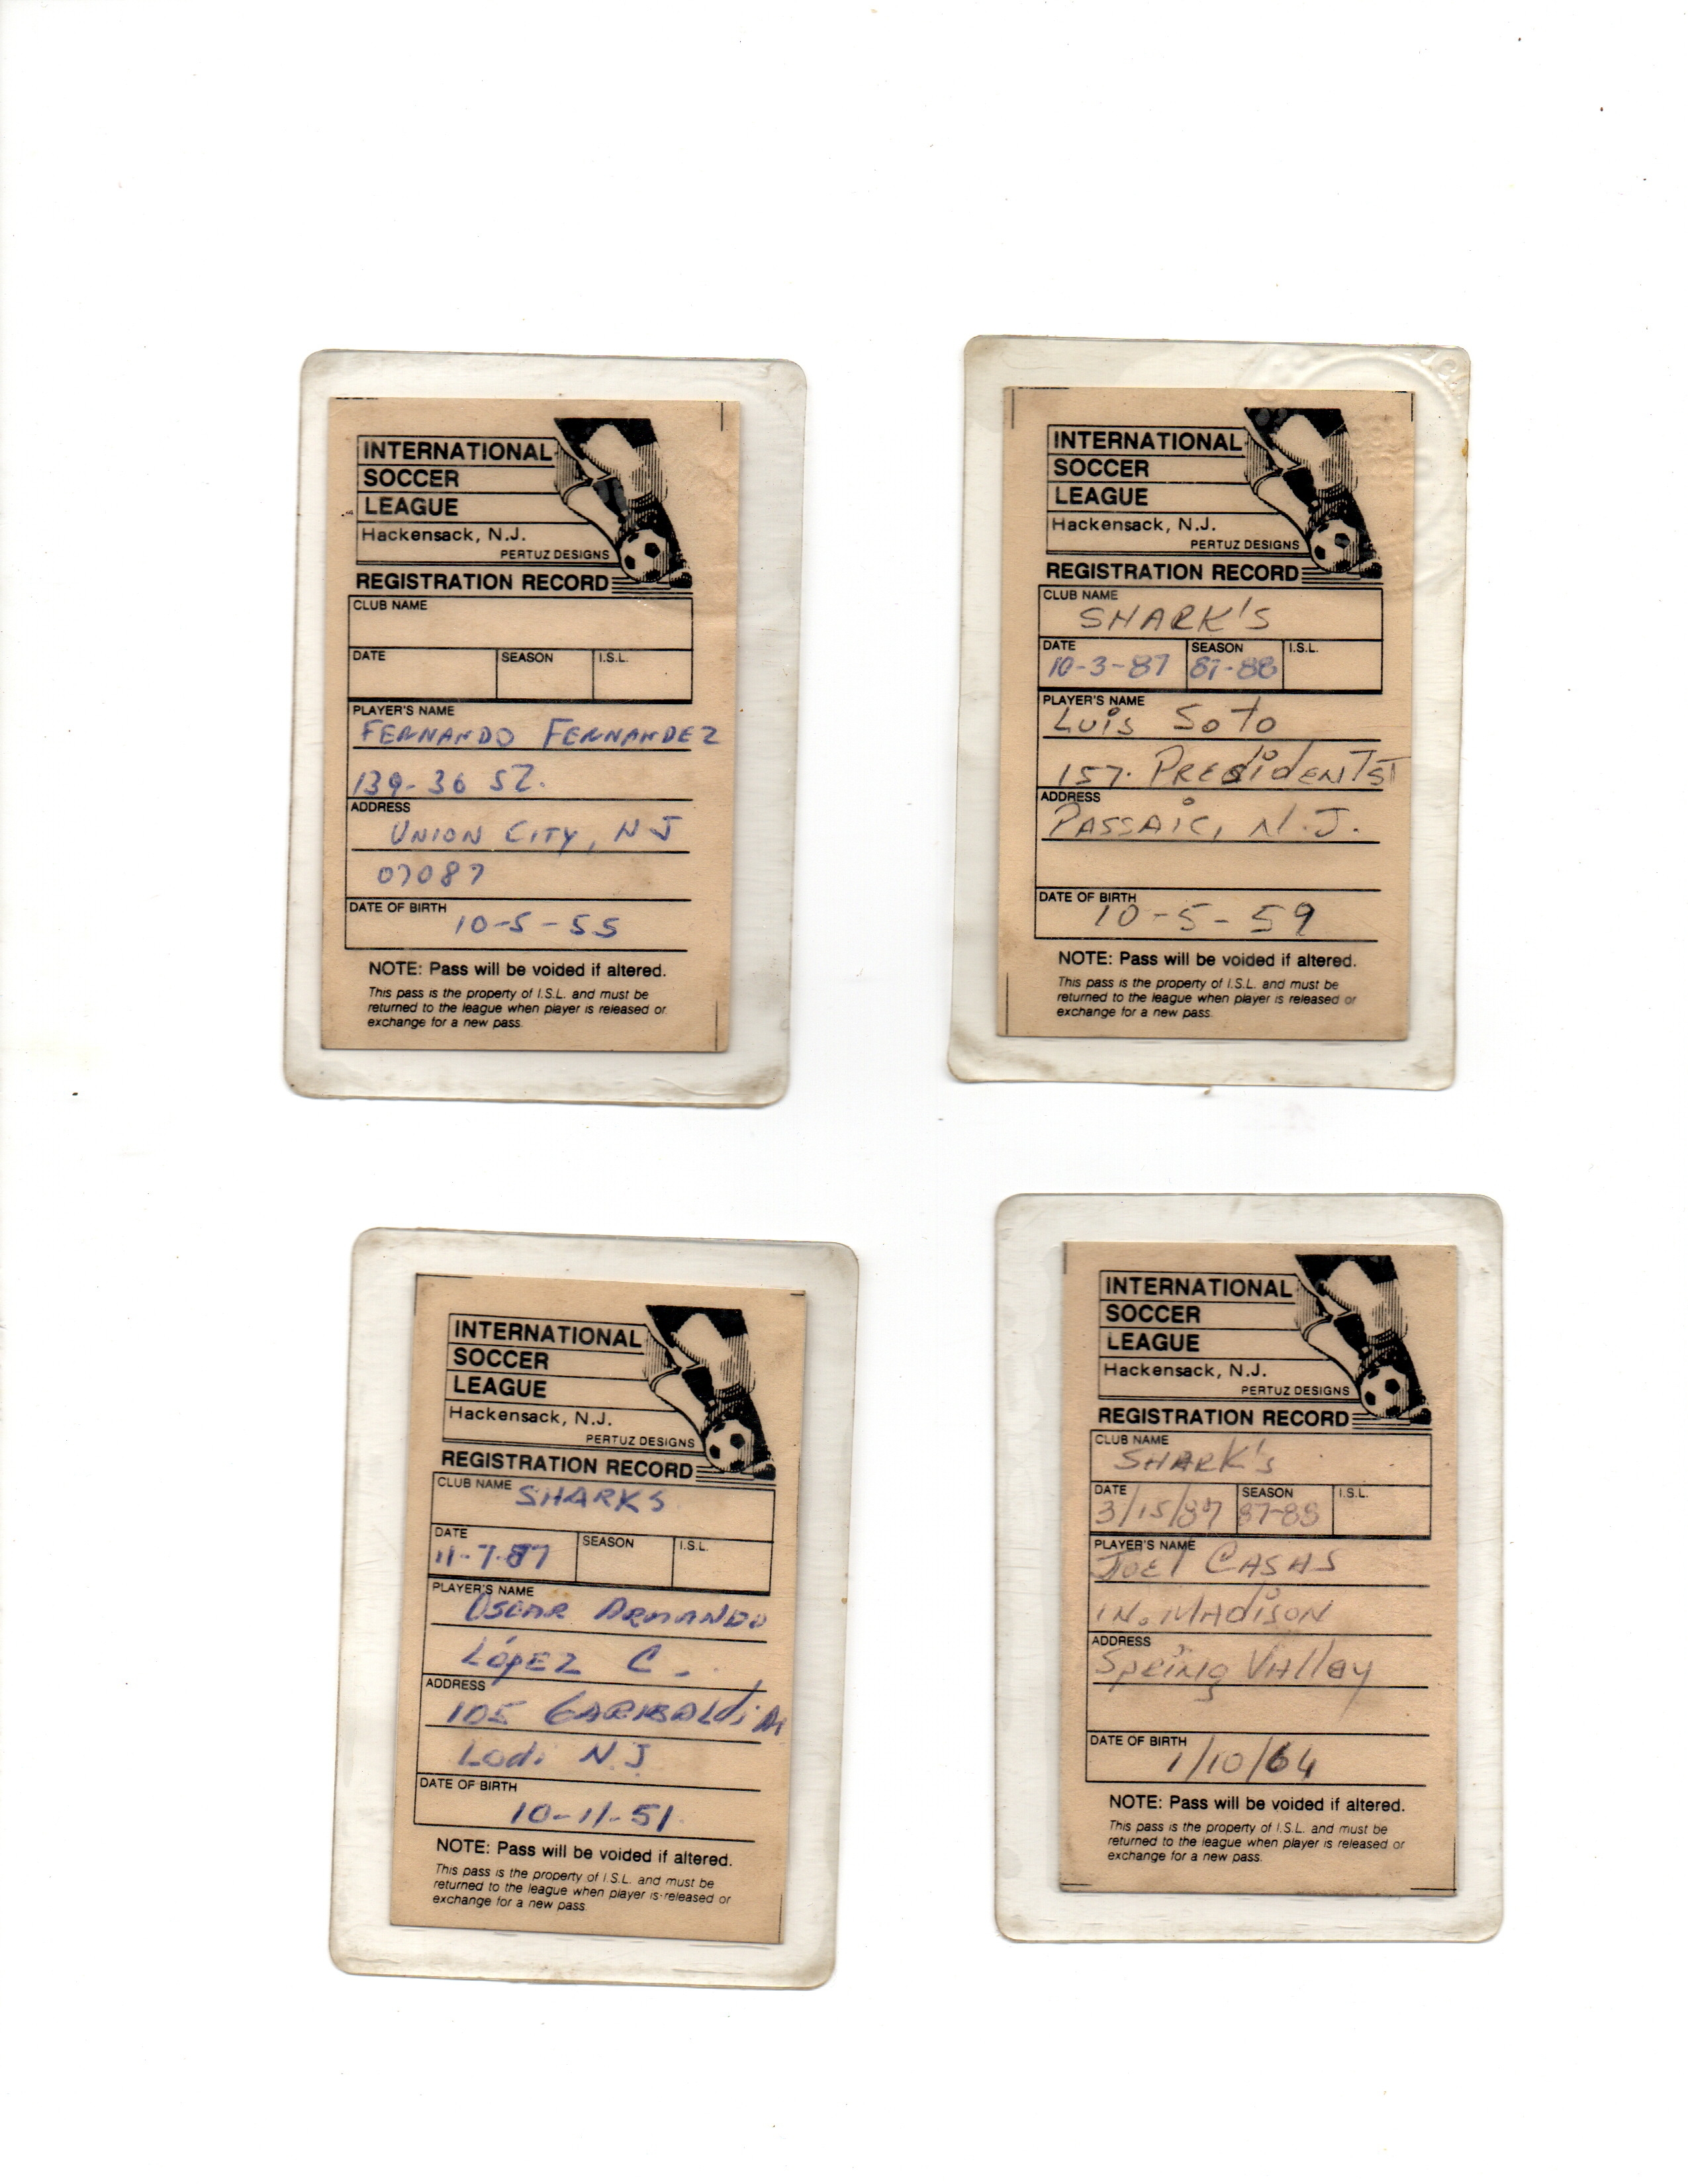 INTERNATIONAL
SOCCER
LEAGUE
Hackensack, N.J.
PERTUZ DESIGNS
REGISTRATION RECORD
CLUB NAME
DATE SEASON I.S.L.
PLAYER'S NAME
FERNANDO FERNANDEZ
139-36 ST.
ADDRESS
UNION CITY, NJ
07087
DATE OF BIRTH
10-5-55
NOTE: Pass will be voided if altered.
This pass is the property of I.S.L. and must be
returned to the league when player is released or
exchange for a new pass.
INTERNATIONAL
SOCCER
LEAGUE
Hackensack, N.J.
PERTUZ DESIGNS
REGISTRATION RECORD
CLUB NAME
SHARK'S
DATE SEASON I.S.L.
10-3-87 87-88
PLAYER'S NAME
Luis Soto
157. PRESidENT ST
ADDRESS
PASSAIC, N.J.
DATE OF BIRTH
10-5-59
NOTE: Pass will be voided if altered.
This pass is the property of I.S.L. and must be
returned to the league when player is released or
exchange for a new pass.
INTERNATIONAL
SOCCER
LEAGUE
Hackensack, N.J.
PERTUZ DESIGNS
REGISTRATION RECORD
CLUB NAME SHARKS
DATE SEASON I.S.L.
11-7-87
PLAYER'S NAME
OSCAR ARMANDO
LópEZ C.
ADDRESS
105 GARIBALdi
Lodi N.J
DATE OF BIRTH
10-11-51.
NOTE: Pass will be voided if altered.
This pass is the property of I.S.L. and must be
returned to the league when player is released or
exchange for a new pass.
INTERNATIONAL
SOCCER
LEAGUE
Hackensack, N.J.
PERTUZ DESIGNS
REGISTRATION RECORD
CLUB NAME
SHARK's
DATE SEASON I.S.L.
3/15/87 87-88
PLAYER'S NAME
JOEl CASAS
MAdisoN
ADDRESS
Spring VAlley
DATE OF BIRTH
1/10/64
NOTE: Pass will be voided if altered.
This pass is the property of I.S.L. and must be
returned to the league when player is released or
exchange for a new pass.